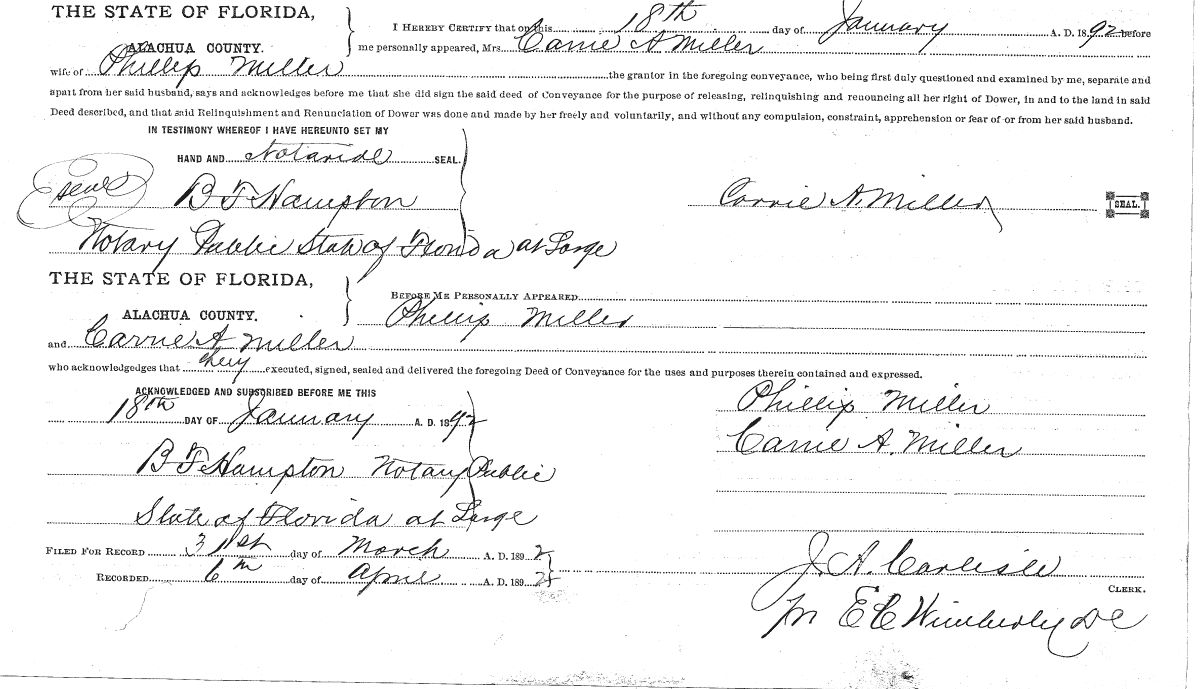 THE STATE OF FLORIDA,
I HEREBY CERTIFY that on this 18th day of January A. D. 1892 before
ALACHUA COUNTY.
me personally appeared, Mrs. Carrie A Miller
wife of Phillip Miller the grantor in the foregoing conveyance, who being first duly questioned and examined by me, separate and
apart from her said husband, says and acknowledges before me that she did sign the said deed of Conveyance for the purpose of releasing, relinquishing and renouncing all her right of Dower, in and to the land in said
Deed described, and that said Relinquishment and Renunciation of Dower was done and made by her freely and voluntarily, and without any compulsion, constraint, apprehension or fear of or from her said husband.
IN TESTIMONY WHEREOF I HAVE HEREUNTO SET MY
HAND AND Notarial SEAL.
seal B F Hampton Carrie A. Miller SEAL.
Notary Public State of Florida at Large
THE STATE OF FLORIDA,
BEFORE ME PERSONALLY APPEARED
ALACHUA COUNTY. Phillip Miller
and Carrie A Miller
who acknowledges that they executed, signed, sealed and delivered the foregoing Deed of Conveyance for the uses and purposes therein contained and expressed.
ACKNOWLEDGED AND SUBSCRIBED BEFORE ME THIS
18th DAY OF January A. D. 1892
Phillip Miller
Carrie A. Miller
B F Hampton Notary Public
State of Florida at Large
FILED FOR RECORD 31st day of March A. D. 1892
RECORDED 6th day of April A. D. 1892
J. A. Carlisle
CLERK.
Pr E C Wimberly D C